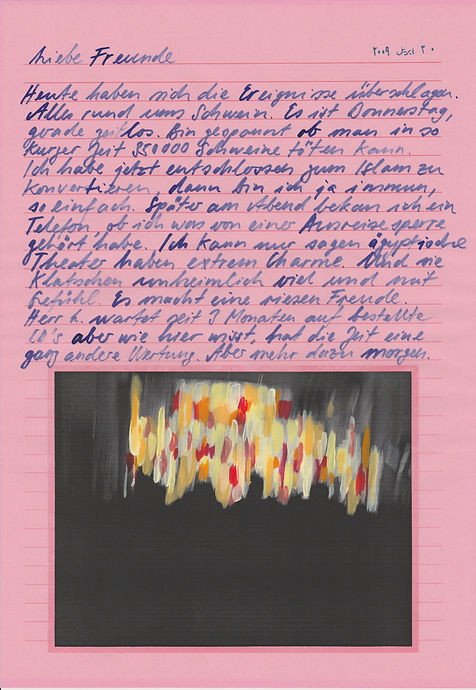 Liebe Freunde
٣٠ ابريل ٢٠٠٩
Heute haben sich die Ereignisse überschlagen.
Alles rund ums Schwein. Es ist Donnerstag,
gerade zeitlos. Bin gespannt ob man in so
kurzer Zeit 350000 Schweine töten kann.
Ich habe jetzt entschlossen zum Islam zu
konvertieren, dann bin ich ja immun,
so einfach. Später am Abend bekam ich ein
Telefon, ob ich was von einer Ausreisesperre
gehört habe. Ich kann nur sagen ägyptische
Theater haben extrem Charme. Und sie
klatschen unheimlich viel und mit
Gefühl. Es macht eine riesen Freude.
Herr wartet seit 3 Monaten auf bestellte
CD's aber wie hier wisst, hat die Zeit eine
ganz andere Wertung. Aber mehr dazu morgen.